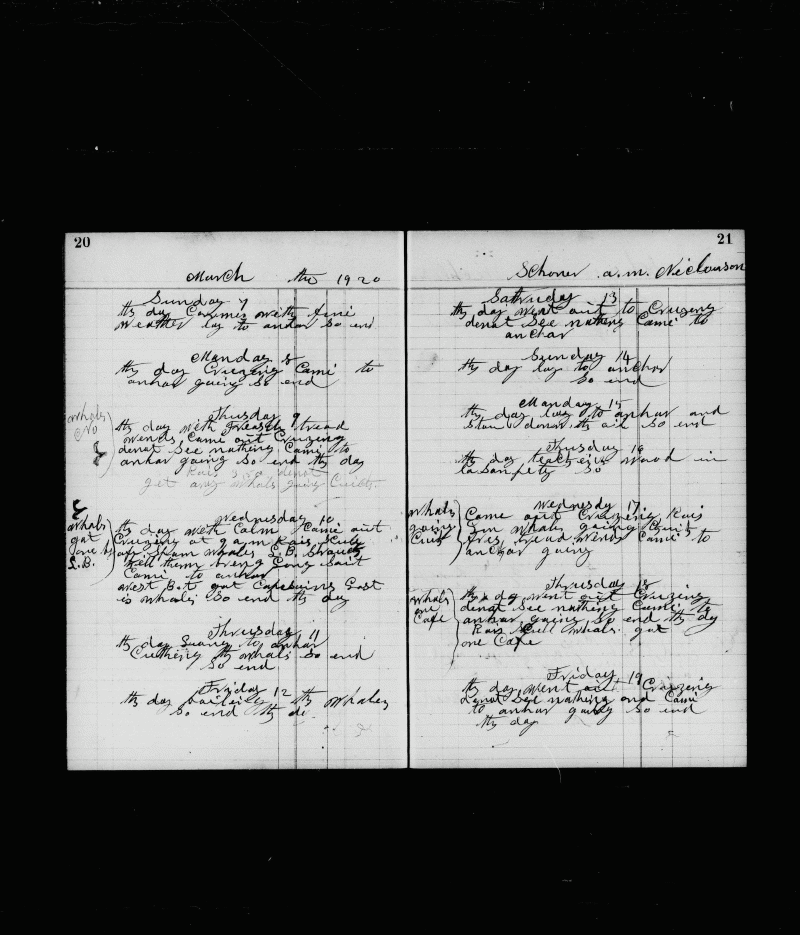 20
March the 1920
Sunday 7
th day Comes with fine
weather lay to anchor so end
Monday 8
th day Cruzeng Came to
anhar going so end
whales
No
Thusday 9
th day with freash tread
wends Came out Cruzeng
denat See nathing Came to
anhar going so end th day
get any whals going
whals
gat
one by
S.B.
Wednesday 10
th day with Calm Came out
Cruzeng at 9 a.m. Rais
Sparm whales S.B. Strouck
Kell them breng long Sait
Came to anhar
west B.t gat East
is whals so end th day
Thrusday 11
th day to anhar
Cutheng th whals so end
so end
Friday 12
th day th whales
so end th de
21
Schoner a.m. Niclouson
Satruday 13
th day went out to Cruzeng
denat See nathing Came to
anchar
Sunday 14
th day lay to anchar
so end
Monday 15
th day lay to anhar and
th ail so end
Thusday 16
th day wood in
so
whals
going
Wednesday 17
Came out Cruizeng Rais
whales going
tread wend Came to
anchar going
whals
one
Cafe
Thrusday 18
th day went out Cruzeng
denat See nathing Came to
anhar going so end th dy
Rais Skull whals gat
one Cafe
Friday 19
th day went out Cruezeng
denat See nathing and Came
to anhar going so end
th day